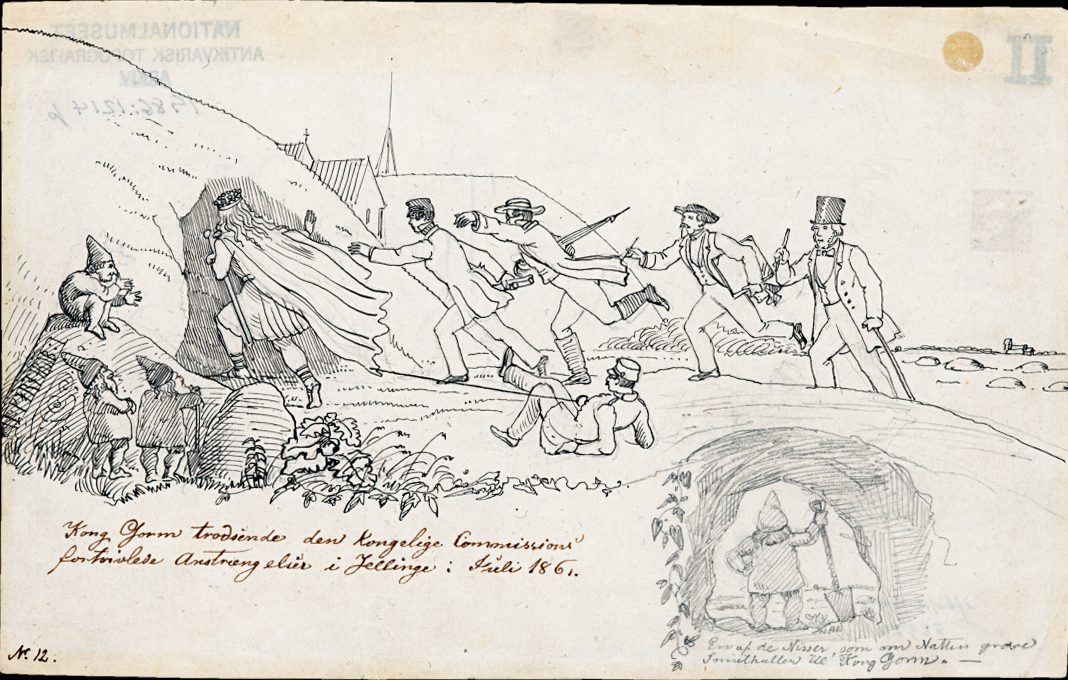 NATIONALMUSEET
ANTIKVARISK TOPOGRAFISK
ARKIV
II
Kong Gorm trodsende den kongelige Commissions'
fortvivlede Anstrængelser i Jellinge: Juli 1861.
En af de Nisser, som om Natten grave
Smuthuller til Kong Gorm. —
No. 12.